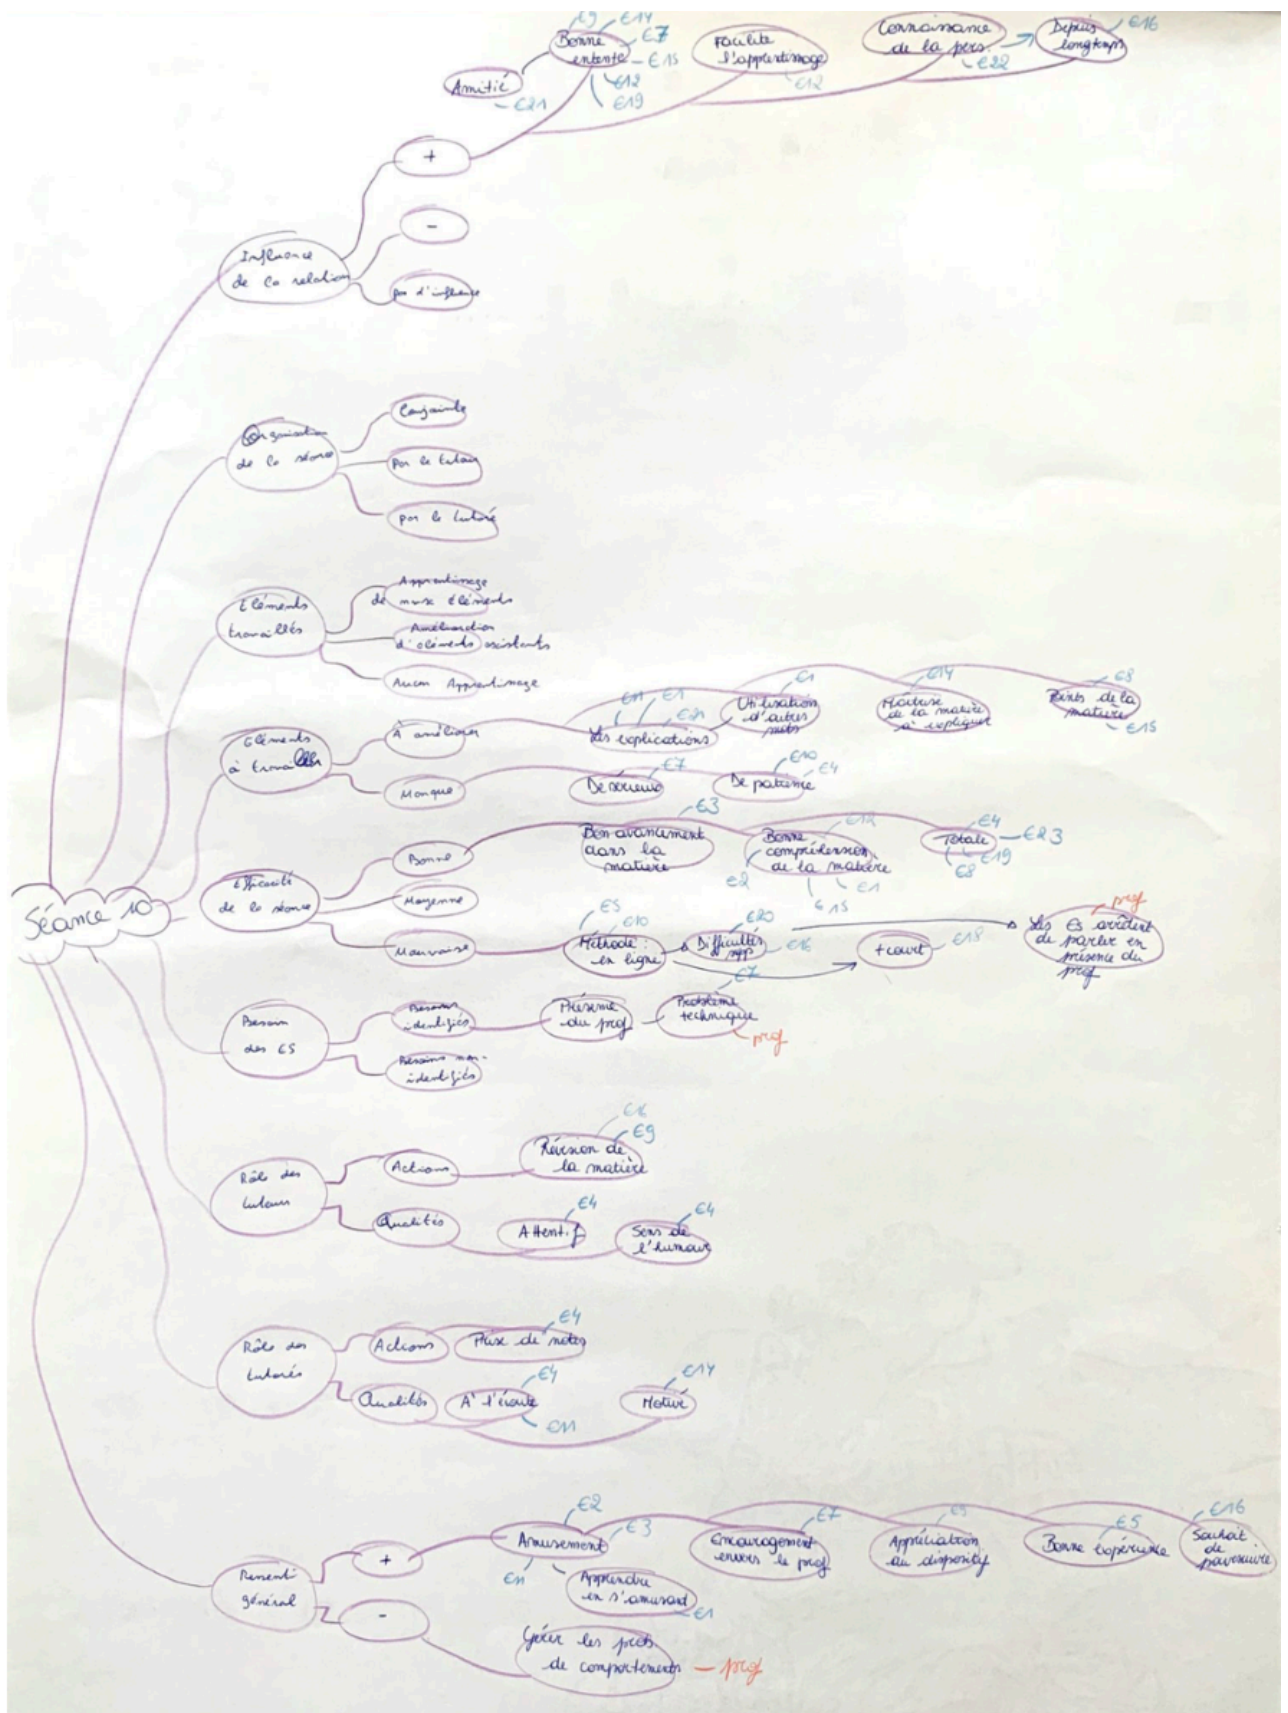 E9
E14
Bonne
entente
E7
E15
E12
E19
Amitié
E21
Facilite
l'apprentissage
E12
Connaissance
de la pers.
E22
Depuis
longtemps
E16
+
-
pas d'influence
Influence
de la relation
Organisation
de la séance
Conjointe
par le tuteur
par le tutoré
Eléments
travaillés
Apprentissage
de nvx éléments
Amélioration
d'éléments existants
Aucun Apprentissage
Eléments
à travailler
À améliorer
Les explications
E11
E1
E21
Utilisation
d'autres
mots
E1
Maitrise
de la matière
à expliquer
E14
Points de la
matière
E8
E15
Manque
De sérieux
E7
De patience
E10
E4
Séance 10
Efficacité
de la séance
Bonne
Bon avancement
dans la
matière
E3
Bonne
compréhension
de la matière
E12
E2
E1
E15
Totale
E4
E23
E19
E8
Moyenne
Mauvaise
Méthode :
en ligne
E5
E10
Difficultés
E20
E16
+ court
E18
Les Es arrêtent
de parler en
présence du
prof
prof
Besoin
des ES
Besoins
identifiés
Présence
du prof
Problème
technique
E7
prof
Besoins non-
identifiés
Rôle des
tuteurs
Actions
Révision de
la matière
E9
Qualités
Attentif
E4
Sens de
l'humour
E4
Rôle des
tutorés
Actions
Prise de notes
E4
Qualités
A l'écoute
E4
E11
Motivé
E14
Ressenti
général
+
Amusement
E2
E3
E11
Apprendre
en s'amusant
E1
Encouragement
envers le prof
E7
Appréciation
du dispositif
E9
Bonne expérience
E5
Souhait
de
poursuivre
E16
-
Gérer les probs
de comportements
prof